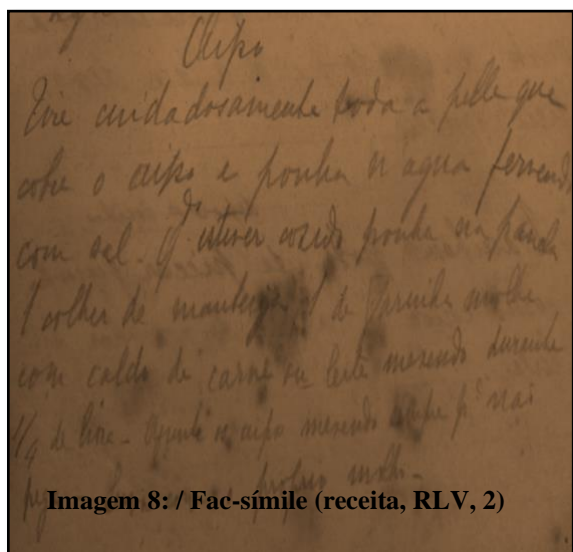 Aipo
Tire cuidadosamente toda a pelle que
cobre o aipo e ponha n agua fervendo
com sal. Qdo estiver cosido ponha na panela
1 colher de manteiga 1 de farinha molhe
com caldo de carne ou leite mexendo durante
1/4 de hora - Ajunte o aipo mexendo sempre pª nai
molho -
Imagem 8: / Fac-símile (receita, RLV, 2)